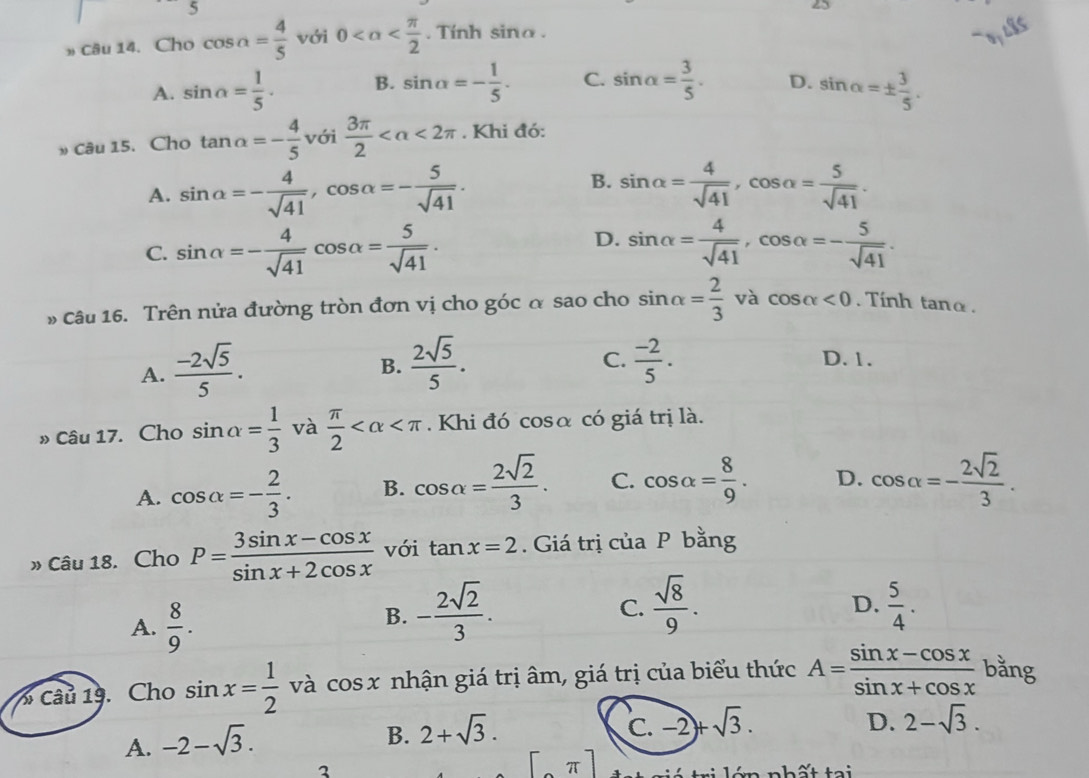 5 25
» Câu 14. Cho cos α = 4/5 với 0 < α < π/2. Tính sin α.
A. sin α = 1/5. B. sin α = -1/5. C. sin α = 3/5. D. sin α = ±3/5.
» Câu 15. Cho tan α = -4/5 với 3π/2 < α < 2π. Khi đó:
A. sin α = -4/√41, cos α = -5/√41. B. sin α = 4/√41, cos α = 5/√41.
C. sin α = -4/√41 cos α = 5/√41. D. sin α = 4/√41, cos α = -5/√41.
» Câu 16. Trên nửa đường tròn đơn vị cho góc α sao cho sin α = 2/3 và cos α < 0. Tính tan α.
A. -2√5/5. B. 2√5/5. C. -2/5. D. 1.
» Câu 17. Cho sin α = 1/3 và π/2 < α < π. Khi đó cos α có giá trị là.
A. cos α = -2/3. B. cos α = 2√2/3. C. cos α = 8/9. D. cos α = -2√2/3.
» Câu 18. Cho P = (3 sin x - cos x)/(sin x + 2 cos x) với tan x = 2. Giá trị của P bằng
A. 8/9. B. -2√2/3. C. √8/9. D. 5/4.
» Câu 19. Cho sin x = 1/2 và cos x nhận giá trị âm, giá trị của biểu thức A = (sin x - cos x)/(sin x + cos x) bằng
A. -2 - √3. B. 2 + √3. C. -2 + √3. D. 2 - √3.
3 [ π ] giá trị lớn nhất tại